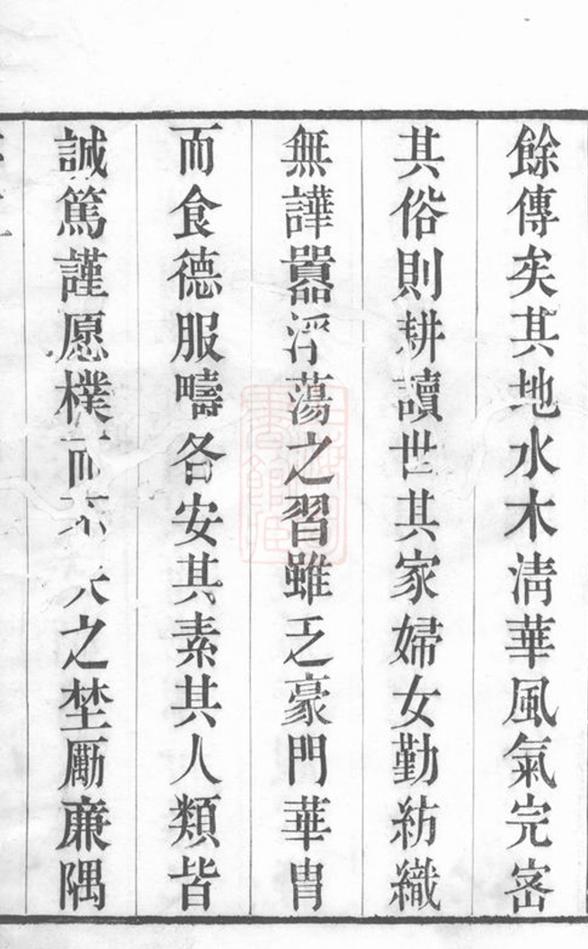 餘傳矣其地水木清華風氣完密
其俗則耕讀世其家婦女勤紡織
無譁囂浮蕩之習雖乏豪門華胄
而食德服疇各安其素其人類皆
誠篤謹愿樸而不失之埜勵廉隅